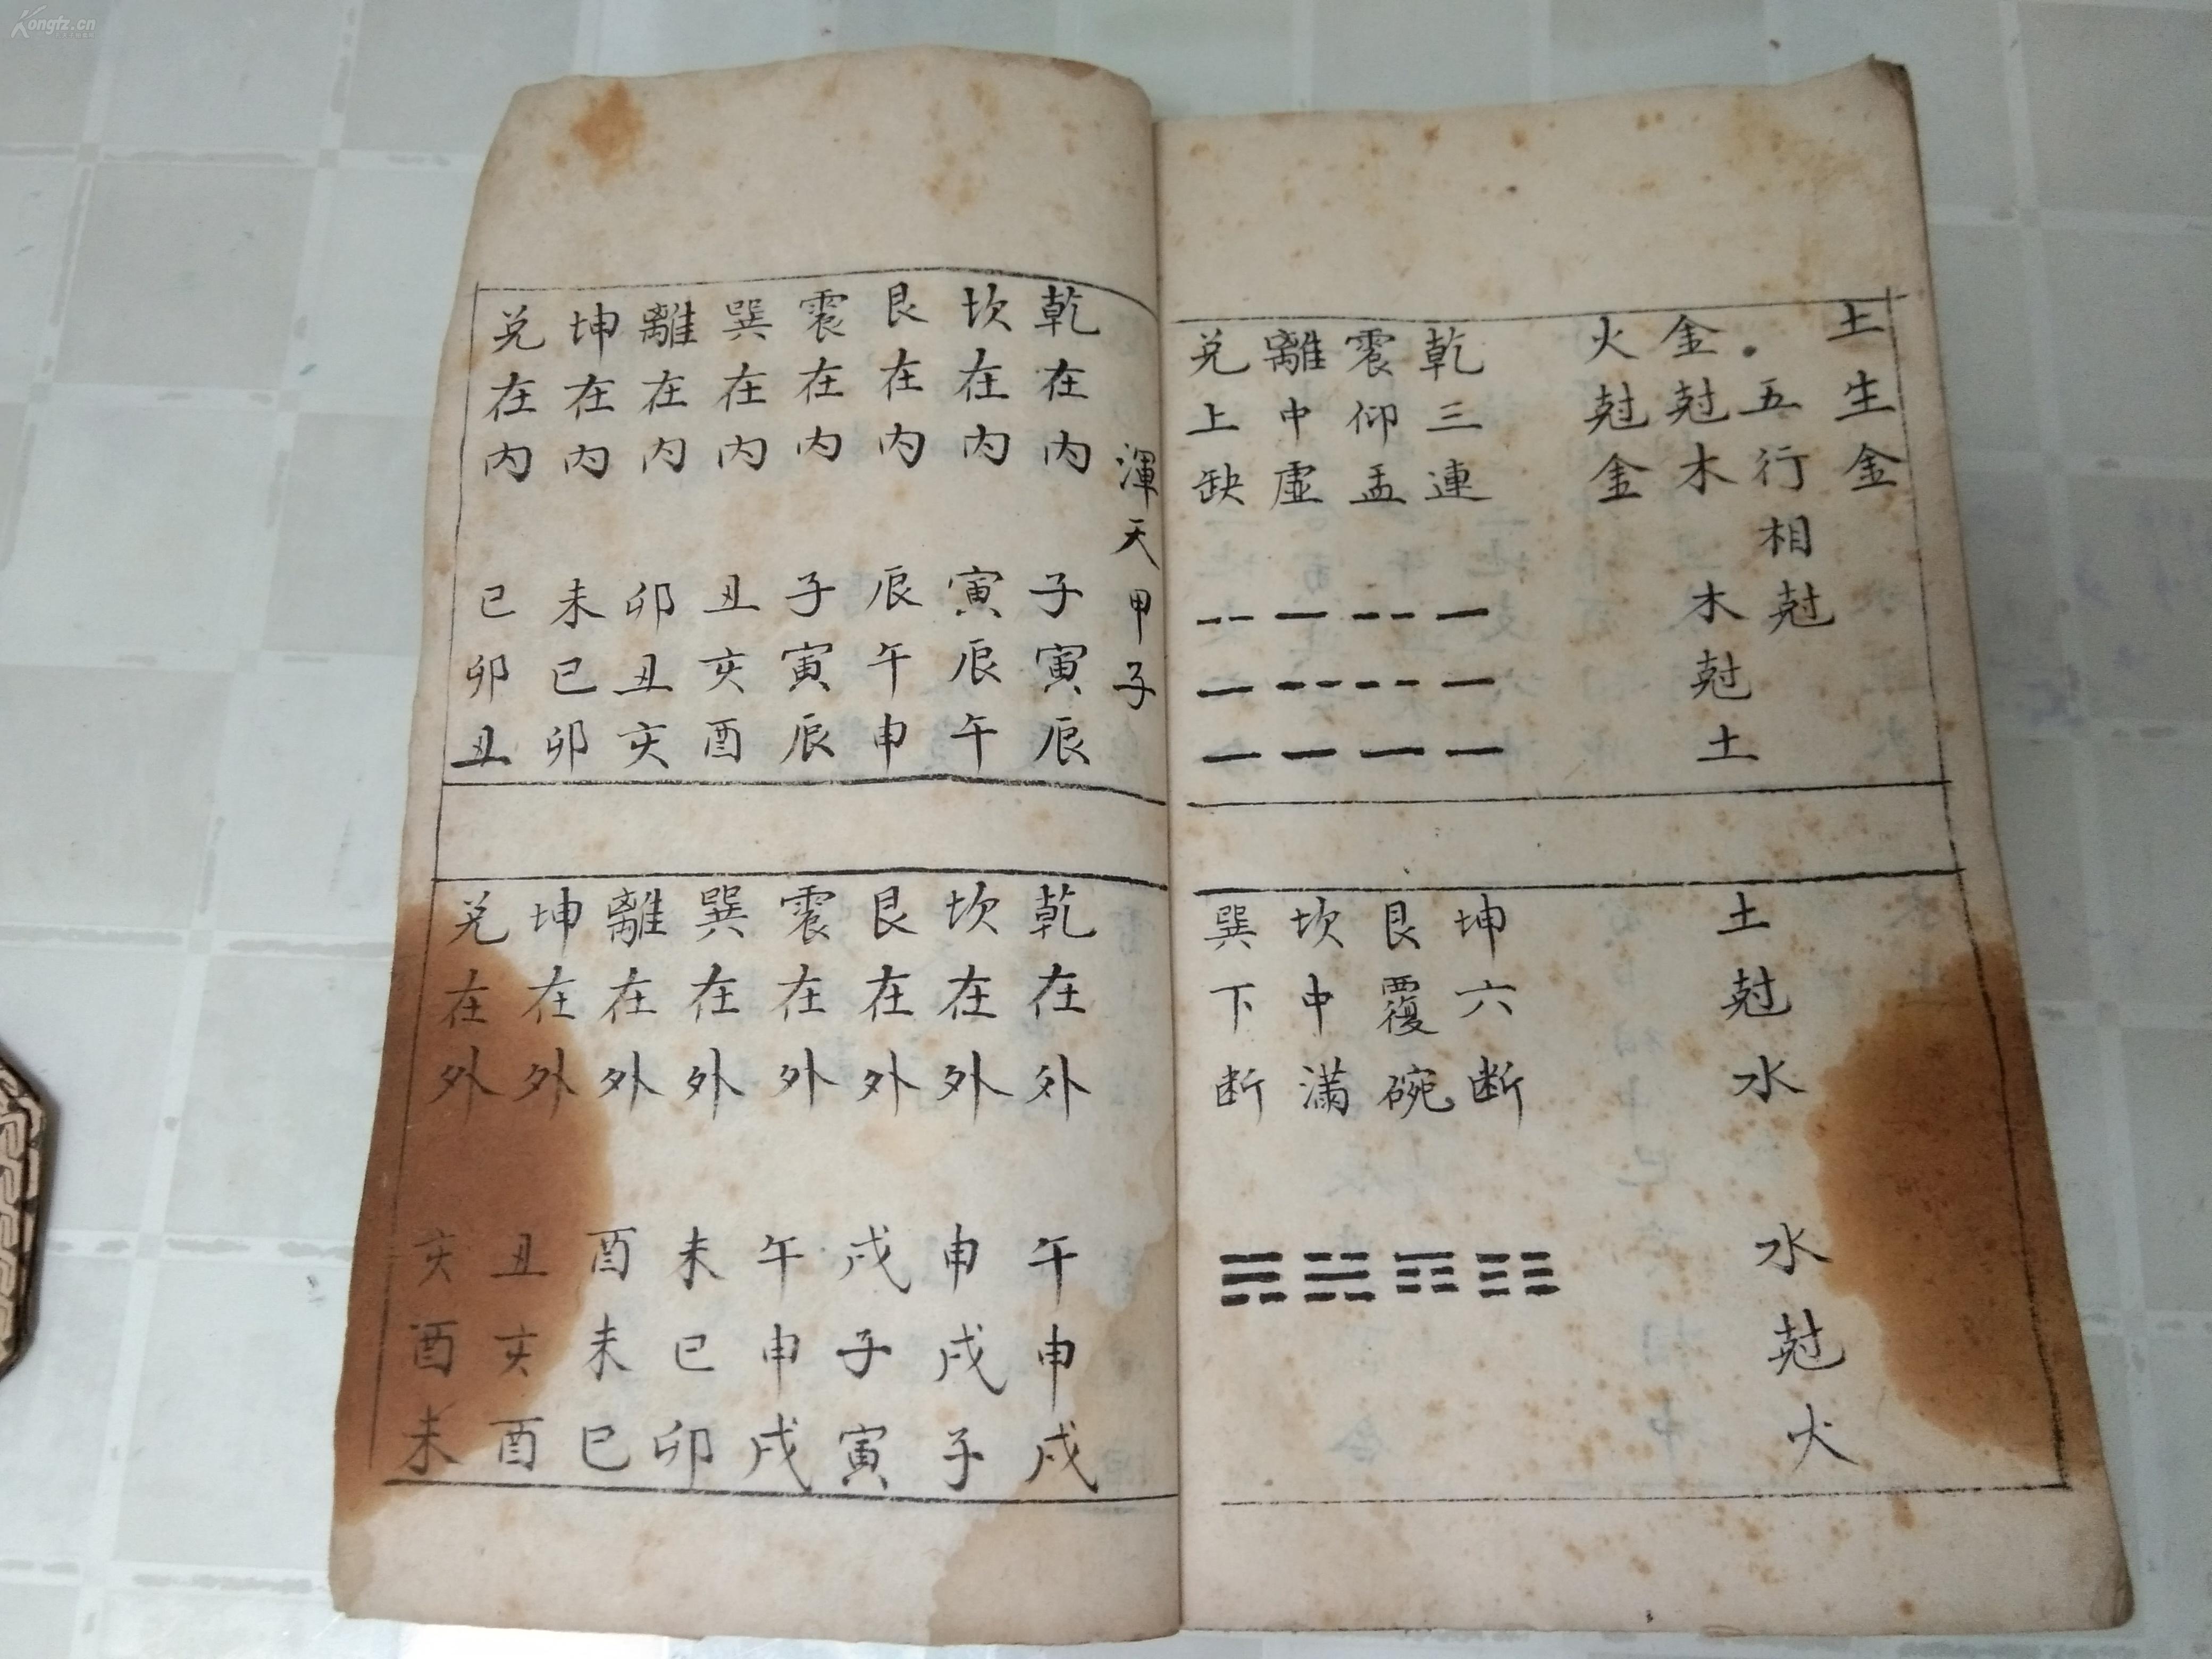 Kongfz.cn
土生金
五行相尅
金尅木
木尅土
土尅水
水尅火
火尅金
乾三連
震仰盂
離中虛
兌上缺
坤六断
艮覆碗
坎中滿
巽下断
渾天甲子
乾在内 子寅辰
坎在内 寅辰午
艮在内 辰午申
震在内 子寅辰
巽在内 丑亥酉
離在内 卯丑亥
坤在内 未巳卯
兌在内 巳卯丑
乾在外 午申戌
坎在外 申戌子
艮在外 戌子寅
震在外 午申戌
巽在外 未巳卯
離在外 酉未巳
坤在外 丑亥酉
兌在外 亥酉未